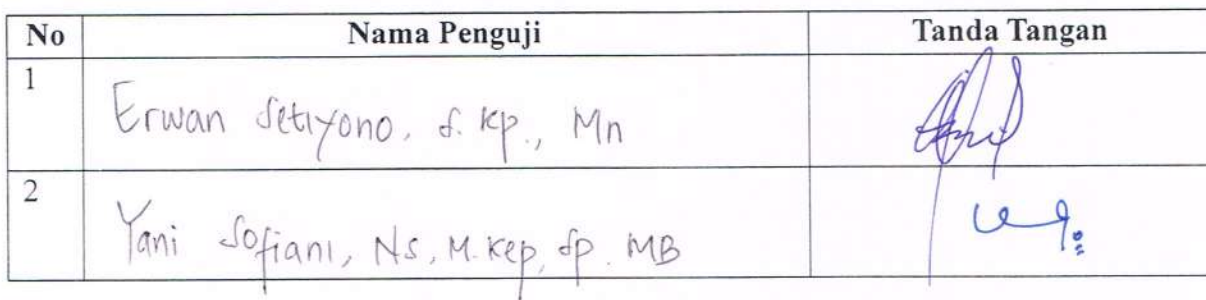 No Nama Penguji Tanda Tangan
1 Erwan Setiyono, S. Kp., Mn
2 Yani Sofiani, Ns, M. Kep, Sp. MB